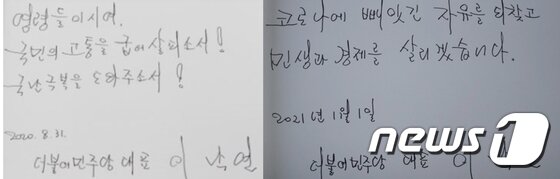 영령들이시여.
국민의 고통을 굽어살피소서!
국난극복을 도와주소서!
2020. 8. 31.
더불어민주당 대표 이 낙연
코로나에 빼앗긴 자유를 되찾고
민생과 경제를 살리겠습니다.
2021년 1월 1일
더불어민주당 대표 이
news1